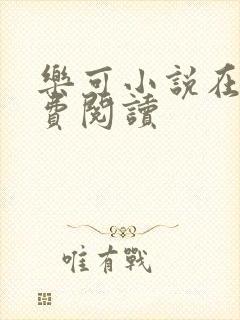 樂可小說在
費閱讀
唯有戰